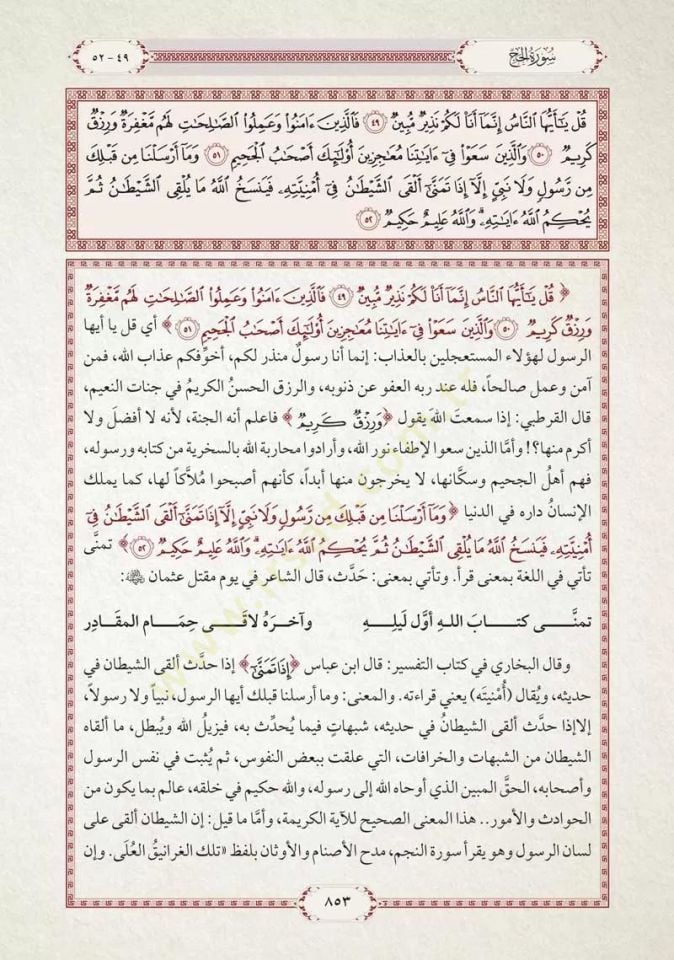 سُورَةُ الحَجّ
٤٩ - ٥٢
قُلْ يَـٰٓأَيُّهَا ٱلنَّاسُ إِنَّمَآ أَنَا۠ لَكُمْ نَذِيرٌ مُّبِينٌ ٤٩ فَٱلَّذِينَ ءَامَنُوا۟ وَعَمِلُوا۟ ٱلصَّـٰلِحَـٰتِ لَهُم مَّغْفِرَةٌ وَرِزْقٌ
كَرِيمٌ ٥٠ وَٱلَّذِينَ سَعَوْا۟ فِىٓ ءَايَـٰتِنَا مُعَـٰجِزِينَ أُو۟لَـٰٓئِكَ أَصْحَـٰبُ ٱلْجَحِيمِ ٥١ وَمَآ أَرْسَلْنَا مِن قَبْلِكَ
مِن رَّسُولٍ وَلَا نَبِىٍّ إِلَّآ إِذَا تَمَنَّىٰٓ أَلْقَى ٱلشَّيْطَـٰنُ فِىٓ أُمْنِيَّتِهِۦ فَيَنسَخُ ٱللَّهُ مَا يُلْقِى ٱلشَّيْطَـٰنُ ثُمَّ
يُحْكِمُ ٱللَّهُ ءَايَـٰتِهِۦ ۗ وَٱللَّهُ عَلِيمٌ حَكِيمٌ ٥٢
﴿ قُلْ يَـٰٓأَيُّهَا ٱلنَّاسُ إِنَّمَآ أَنَا۠ لَكُمْ نَذِيرٌ مُّبِينٌ ٤٩ فَٱلَّذِينَ ءَامَنُوا۟ وَعَمِلُوا۟ ٱلصَّـٰلِحَـٰتِ لَهُم مَّغْفِرَةٌ
وَرِزْقٌ كَرِيمٌ ٥٠ وَٱلَّذِينَ سَعَوْا۟ فِىٓ ءَايَـٰتِنَا مُعَـٰجِزِينَ أُو۟لَـٰٓئِكَ أَصْحَـٰبُ ٱلْجَحِيمِ ٥١ ﴾ أي قل يا أيها
الرسول لهؤلاء المستعجلين بالعذاب: إنما أنا رسولٌ منذر لكم، أخوِّفكم عذاب الله، فمن
آمن وعمل صالحاً، فله عند ربه العفو عن ذنوبه، والرزق الحسنُ الكريمُ في جنات النعيم،
قال القرطبي: إذا سمعتَ اللهَ يقول ﴿وَرِزْقٌ كَرِيمٌ﴾ فاعلم أنه الجنة، لأنه لا أفضلَ ولا
أكرم منها؟! وأمَّا الذين سعوا لإطفاء نور الله، وأرادوا محاربة الله بالسخرية من كتابه ورسوله،
فهم أهلُ الجحيم وسكَّانها، لا يخرجون منها أبداً، كأنهم أصبحوا مُلاَّكاً لها، كما يملك
الإنسانُ داره في الدنيا ﴿وَمَآ أَرْسَلْنَا مِن قَبْلِكَ مِن رَّسُولٍ وَلَا نَبِىٍّ إِلَّآ إِذَا تَمَنَّىٰٓ أَلْقَى ٱلشَّيْطَـٰنُ فِىٓ
أُمْنِيَّتِهِۦ فَيَنسَخُ ٱللَّهُ مَا يُلْقِى ٱلشَّيْطَـٰنُ ثُمَّ يُحْكِمُ ٱللَّهُ ءَايَـٰتِهِۦ ۗ وَٱللَّهُ عَلِيمٌ حَكِيمٌ ٥٢﴾ تمنَّى
تأتي في اللغة بمعنى قرأ. وتأتي بمعنى: حَدَّث، قال الشاعر في يوم مقتل عثمان رضي الله عنه:
تمنَّــى كتــابَ اللـهِ أوَّل لَيلِـهِ وآخـرَهُ لاقَــى حِمَـام المقَـادِر
وقال البخاري في كتاب التفسير: قال ابن عباس ﴿إِذَا تَمَنَّىٰٓ﴾ إذا حدَّث ألقى الشيطان في
حديثه، ويُقال (أُمْنيتَه) يعني قراءته. والمعنى: وما أرسلنا قبلك أيها الرسول، نبياً ولا رسولاً،
إلاإذا حدَّث ألقى الشيطانُ في حديثه، شبهاتٍ فيما يُحدِّث به، فيزيلُ الله ويُبطل، ما ألقاه
الشيطان من الشبهات والخرافات، التي علقت ببعض النفوس، ثم يُثبت في نفس الرسول
وأصحابه، الحقَّ المبين الذي أوحاه الله إلى رسوله، والله حكيم في خلقه، عالم بما يكون من
الحوادث والأمور.. هذا المعنى الصحيح للآية الكريمة، وأمَّا ما قيل: إن الشيطان ألقى على
لسان الرسول وهو يقرأ سورة النجم، مدح الأصنام والأوثان بلفظ «تلك الغرانيقُ العُلَى. وإن
٨٥٣